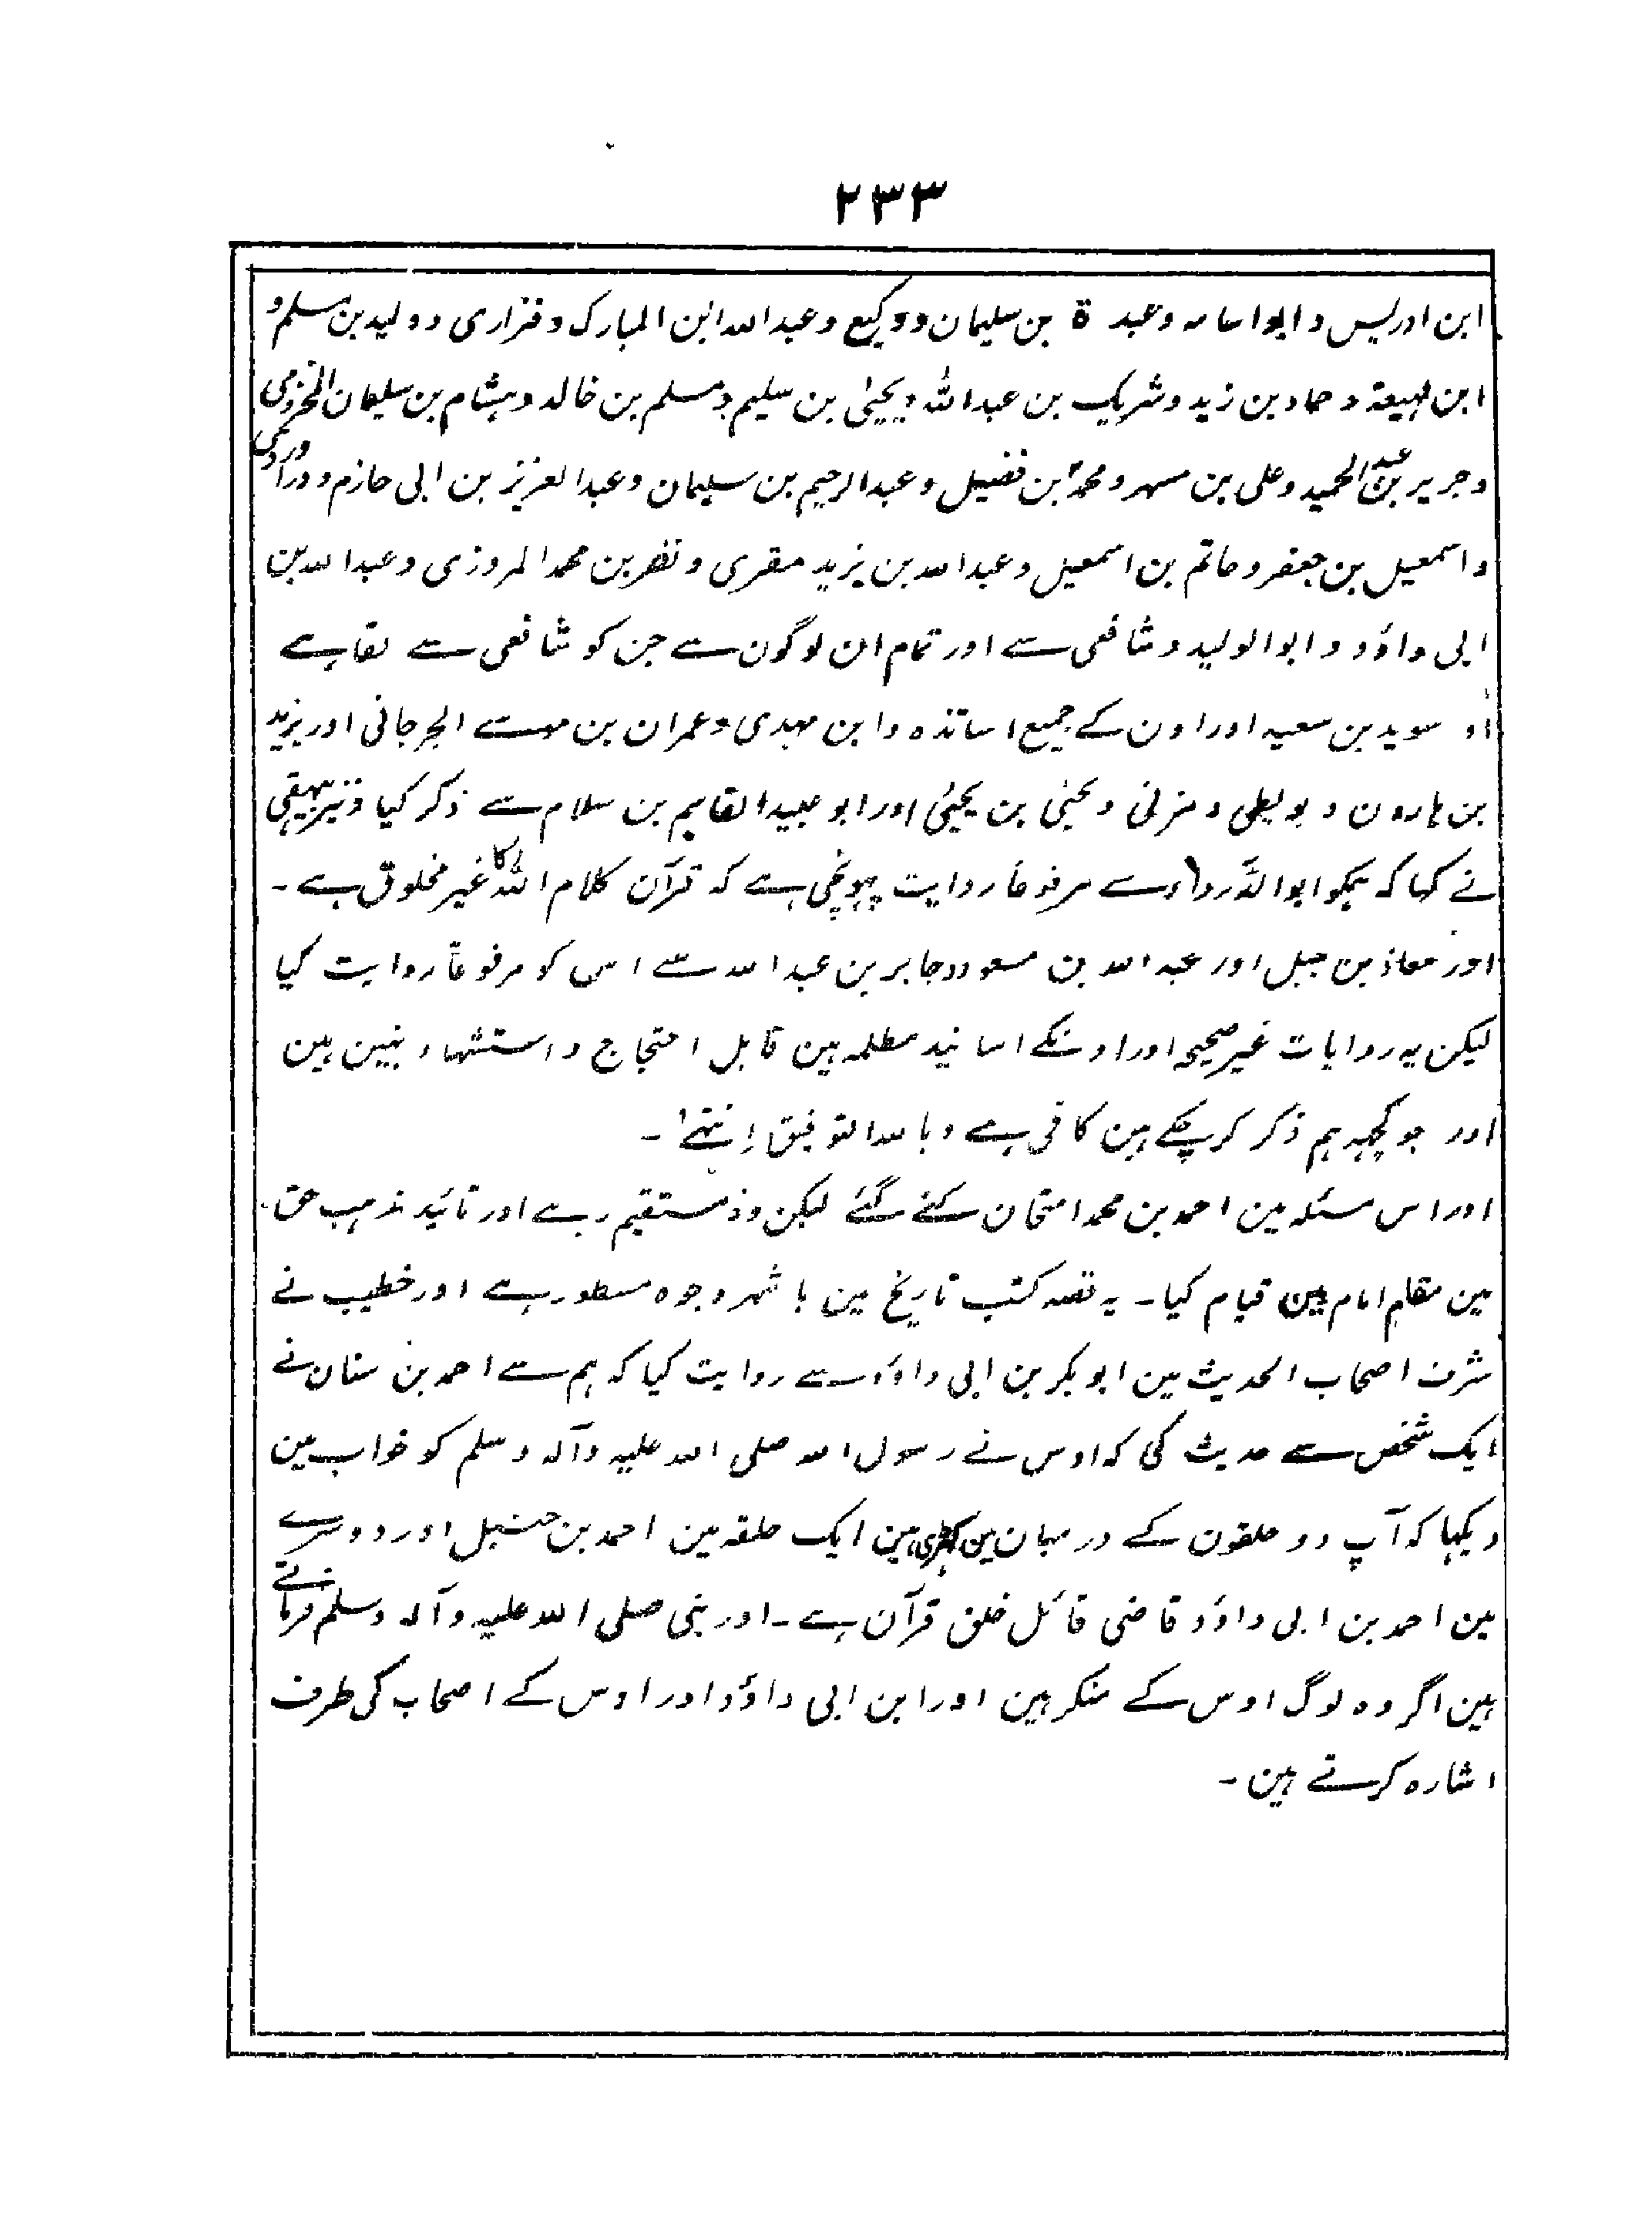 ۲۳۳
ابن ادریس و ابو اسامہ وعبدة بن سلیمان ووکیع وعبد اللہ ابن المبارک وفزاری وولید بن مسلم و
ابن لہیعة وحماد بن زید وشریک بن عبد اللہ ویحییٰ بن سلیم ومسلم بن خالد وہشام بن سلیمان المخزومی
وجریر بن عبد الحمید وعلی بن مسہر ومحمد ابن فضیل وعبد الرحیم بن سلیمان وعبد العزیز بن ابی حازم ودراوردی
واسمعیل بن جعفر وحاتم بن اسمعیل وعبد اللہ بن یزید مقری ونضر بن محمد المروزی وعبد اللہ بن
ابی داؤد وابو الولید وشافعی سے اور تمام ان لوگون سے جن کو شافعی سے لقا ہے
سوید بن سعید اور اون کے جمیع اساتذہ وابن مہدی وعمران بن موسے الجرجانی اور یزید
بن ہارون وبویطی ومزنی ویحیٰی بن یحییٰ اور ابو عبید القاسم بن سلام سے ذکر کیا ونیز بیہقی
نے کہا کہ ہمکو ابو الدرداء سے مرفوعاً روایت پہونچی ہے کہ قرآن کلام اللہ کا غیر مخلوق ہے ۔
اور معاذ بن جبل اور عبد اللہ بن مسعود وجابر بن عبد اللہ سے اس کو مرفوعاً روایت کیا
لیکن یہ روایات غیر صحیحہ اور اونکے اسانید مظلمہ ہین قابل احتجاج واستشہاد نہین ہین
اور جو کچہہ ہم ذکر کر چکے ہین کافی ہے وباللہ التوفیق اِنتہےٰ ۔
اور اس مسئلہ مین احمد بن محمد امتحان کئے گئے لیکن وہ مستقیم رہے اور تائید مذہب حق
مین مقام امام مین قیام کیا ۔ یہ قصہ کتب تاریخ مین باشہر وجوہ مسطور ہے اور خطیب نے
شرف اصحاب الحدیث مین ابو بکر بن ابی داؤد سے روایت کیا کہ ہم سے احمد بن سنان نے
ایک شخص سے حدیث کی کہ اوس نے رسول اللہ صلی اللہ علیہ وآلہ وسلم کو خواب مین
دیکہا کہ آپ دو حلقون کے درمیان مین کہڑی ہین ایک حلقہ مین احمد بن حنبل اور دوسرے
مین احمد بن ابی داؤد قاضی قائل خلق قرآن ہے ۔ اور نبی صلی اللہ علیہ وآلہ وسلم فرماتے
ہین اگر وہ لوگ اوس کے منکر ہین اور ابن ابی داؤد اور اوس کے اصحاب کی طرف
اشارہ کرتے ہین ۔